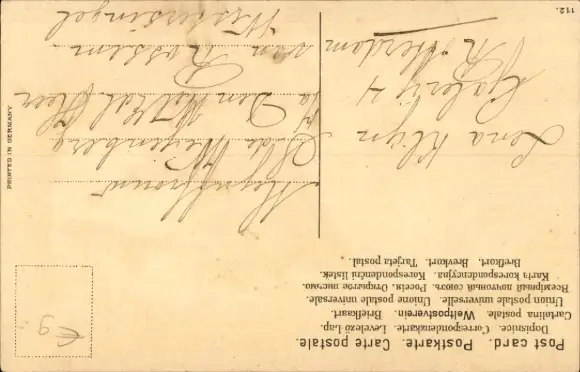 Post card. Postkarte. Carte postale.
Dopisnice. Correspondenzkarte. Levelező-Lap.
Cartolina postale. Weltpostverein. Briefkaart.
Union postale universelle. Unione postale universale.
Всемірный почтовый союзъ. Россія. Открытое письмо.
Karta korespondencyjna. Korespondenční listek.
Brefkort. Brevkort. Tarjeta postal.
Mejuffrouw
C. de Weijenberg
p/a Den WelEd. Heer
van Rossem
Westersingel
Rotterdam
Lena Klijn
Galerij 4
PRINTED IN GERMANY
112.
€ 9-